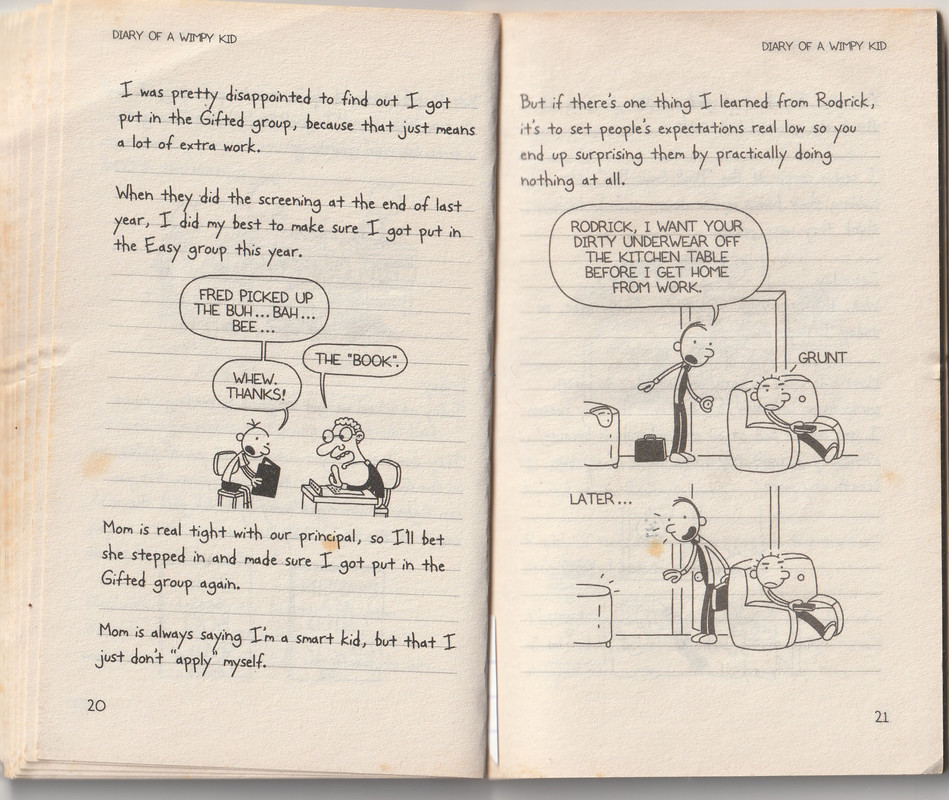 DIARY OF A WIMPY KID
I was pretty disappointed to find out I got
put in the Gifted group, because that just means
a lot of extra work.
When they did the screening at the end of last
year, I did my best to make sure I got put in
the Easy group this year.
FRED PICKED UP
THE BUH... BAH...
BEE...
THE "BOOK".
WHEW.
THANKS!
Mom is real tight with our principal, so I'll bet
she stepped in and made sure I got put in the
Gifted group again.
Mom is always saying I'm a smart kid, but that I
just don't "apply" myself.
20
DIARY OF A WIMPY KID
But if there's one thing I learned from Rodrick,
it's to set people's expectations real low so you
end up surprising them by practically doing
nothing at all.
RODRICK, I WANT YOUR
DIRTY UNDERWEAR OFF
THE KITCHEN TABLE
BEFORE I GET HOME
FROM WORK.
GRUNT
LATER...
21